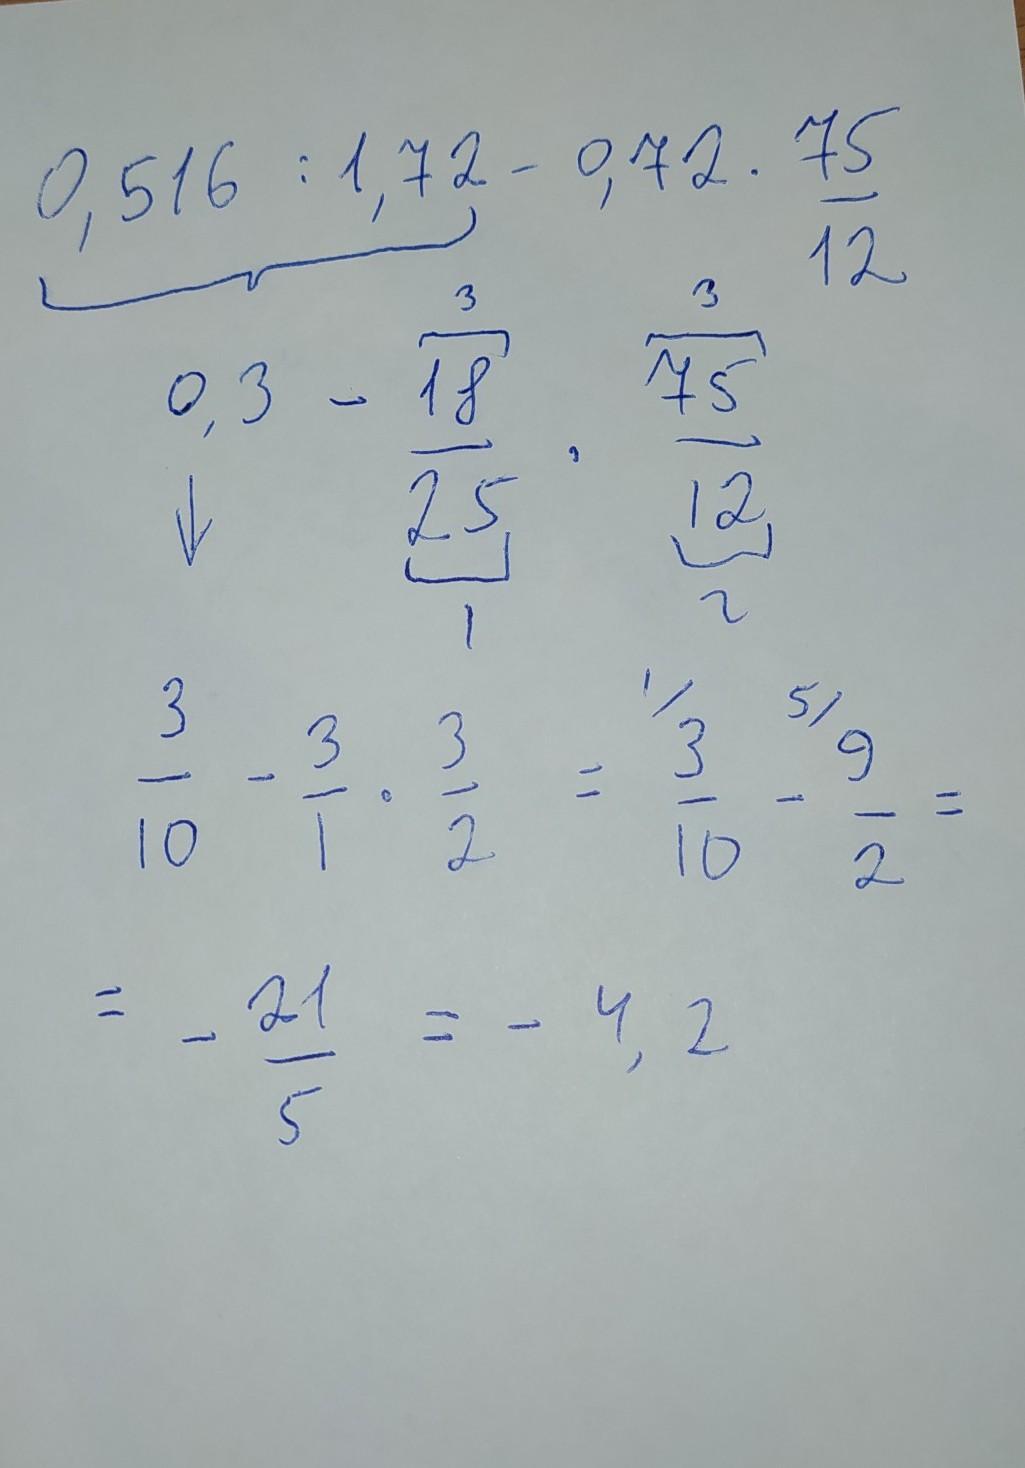 0,516 : 1,72 - 0,72 · 75/12
3 3
0,3 - 18/25 · 75/12
1 2
3/10 - 3/1 · 3/2 = 1/ 3/10 - 5/ 9/2 =
= - 21/5 = - 4,2